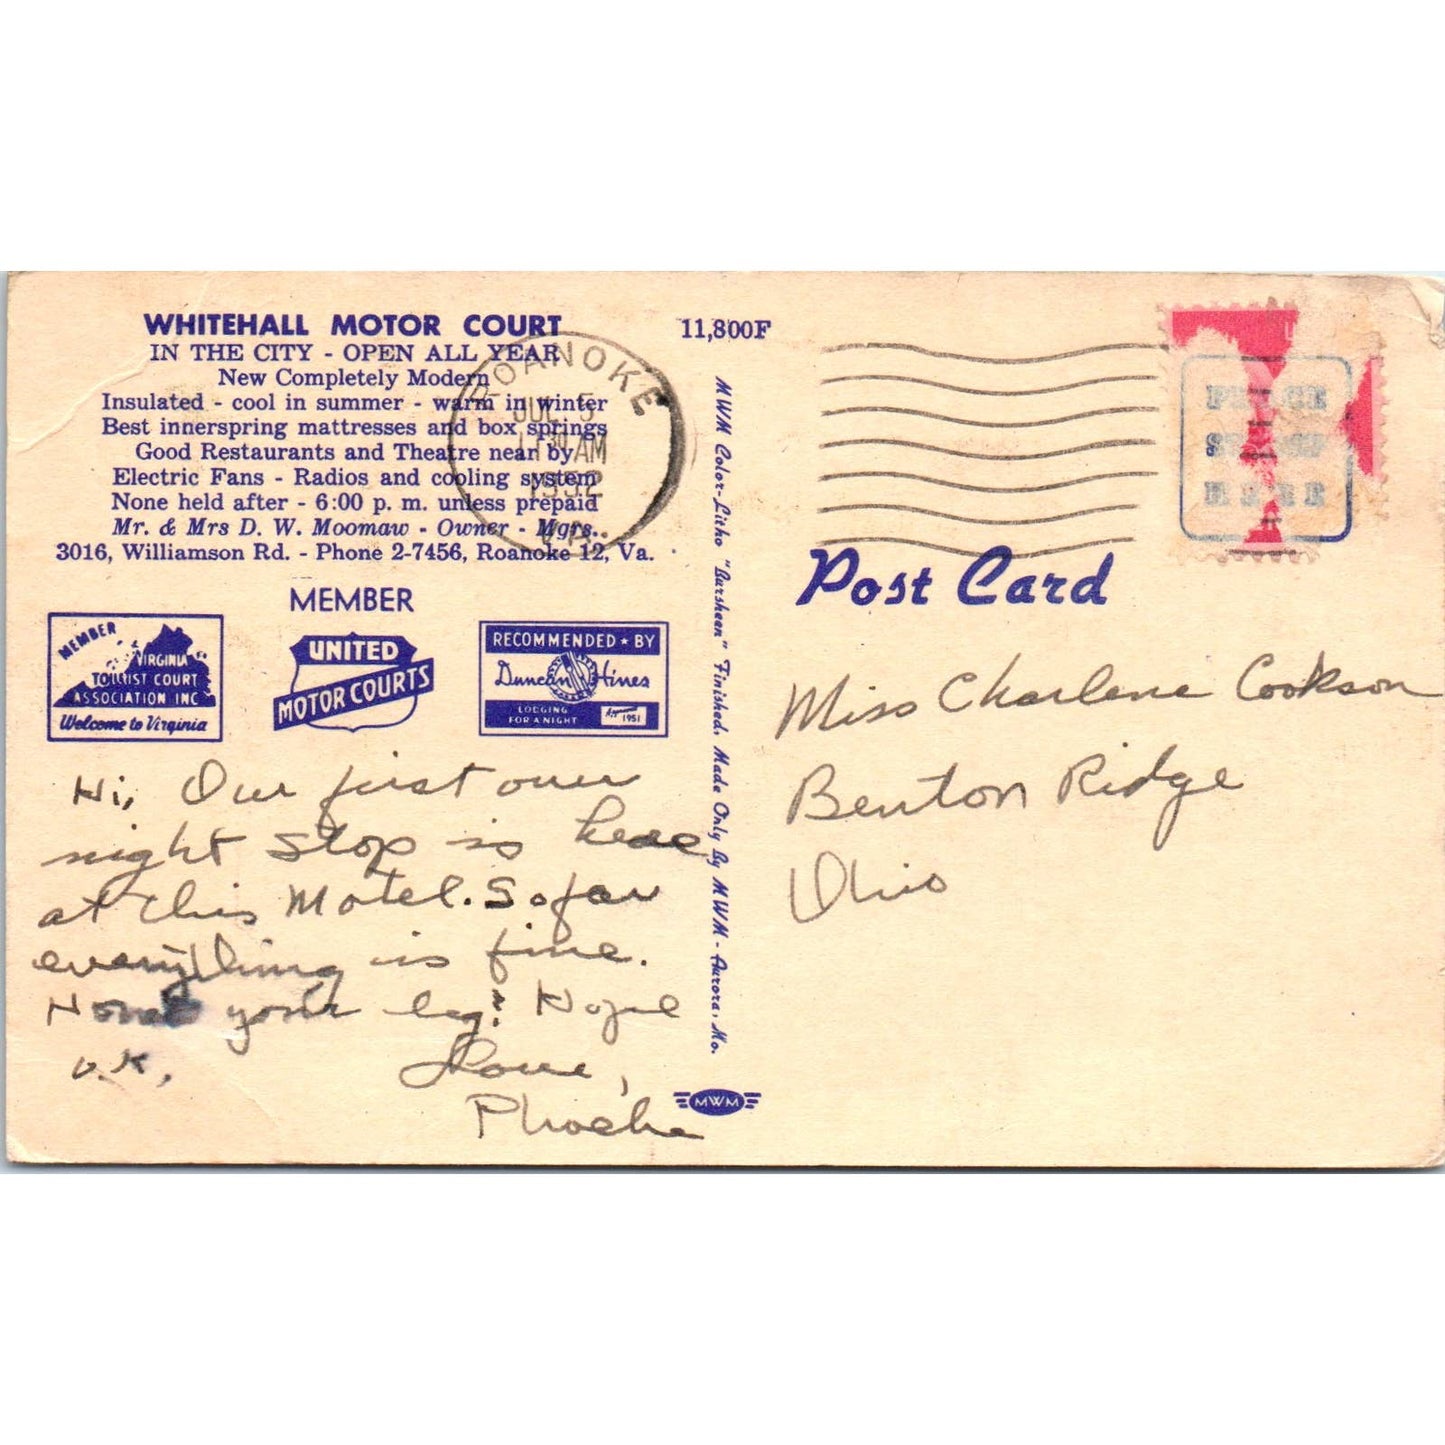 WHITEHALL MOTOR COURT
IN THE CITY - OPEN ALL YEAR
New Completely Modern
Insulated - cool in summer - warm in winter
Best innerspring mattresses and box springs
Good Restaurants and Theatre near by
Electric Fans - Radios and cooling system
None held after - 6:00 p. m. unless prepaid
Mr. & Mrs D. W. Moomaw - Owner - Mgrs.
3016, Williamson Rd. - Phone 2-7456, Roanoke 12, Va.
MEMBER
MEMBER
VIRGINIA
TOURIST COURT
ASSOCIATION INC
Welcome to Virginia
UNITED
MOTOR COURTS
RECOMMENDED ★ BY
Duncan Hines
LODGING
FOR A NIGHT
1951
Hi, Our first over
night stop is here
at this Motel. So far
everything is fine.
your leg. Hope
O.K.
Love,
Phoebe
11,800F
MWM Color-Litho "Bursheen" Finished. Made Only By MWM - Aurora, Mo.
MWM
ROANOKE
JUL 5
30 AM
1952
VA.
PLACE
STAMP
HERE
Post Card
Miss Charlene Cookson
Benton Ridge
Ohio